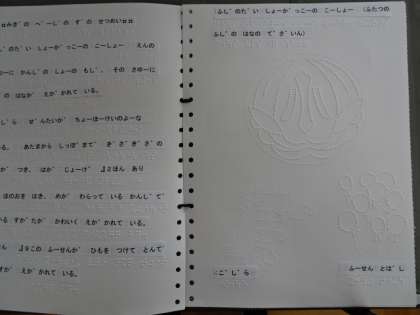 ⌗みぎ゛の ぺ゜ーじ゛の ず゛の せつめい⌗⌗
じ゛のだ゛い しょーが゛っこーの こーしょー えんの
ゅーに かんじ゛の しょーの もじ゛。 その さゆーに
゛の はなが゛ えが゛かれて いる。
しら ぜ゛んたいが゛ ちょーほーけいのよーな
る。 あたまから しっぽ゜まで゛ ぎ゛ざ゛ぎ゛ざ゛の
が゛ つき、 はが゛ じょーげ゛ 4ほん あり
ほのおを はき、 めが゛ わらって いる かんじ゛で゛
いる すが゛たが゛ かわいく えが゛かれて いる。
この ふーせんが゛ ひもを つけて とんで゛
すが゛ えが゛かれて いる。
ふじ゛のだ゛い しょーが゛っこーの こーしょー (ふたつの
ふじ゛の はなの で゛ざ゛いん)
こ゛じ゛ら
ふーせん とば゛し